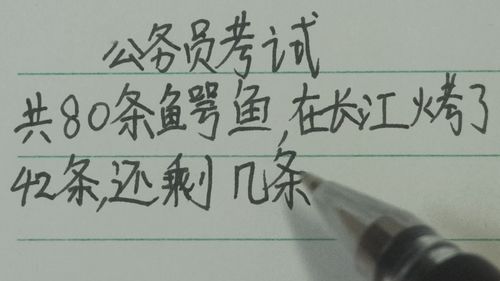 公务员考试
共80条鳄鱼,在长江烤了
42条,还剩几条